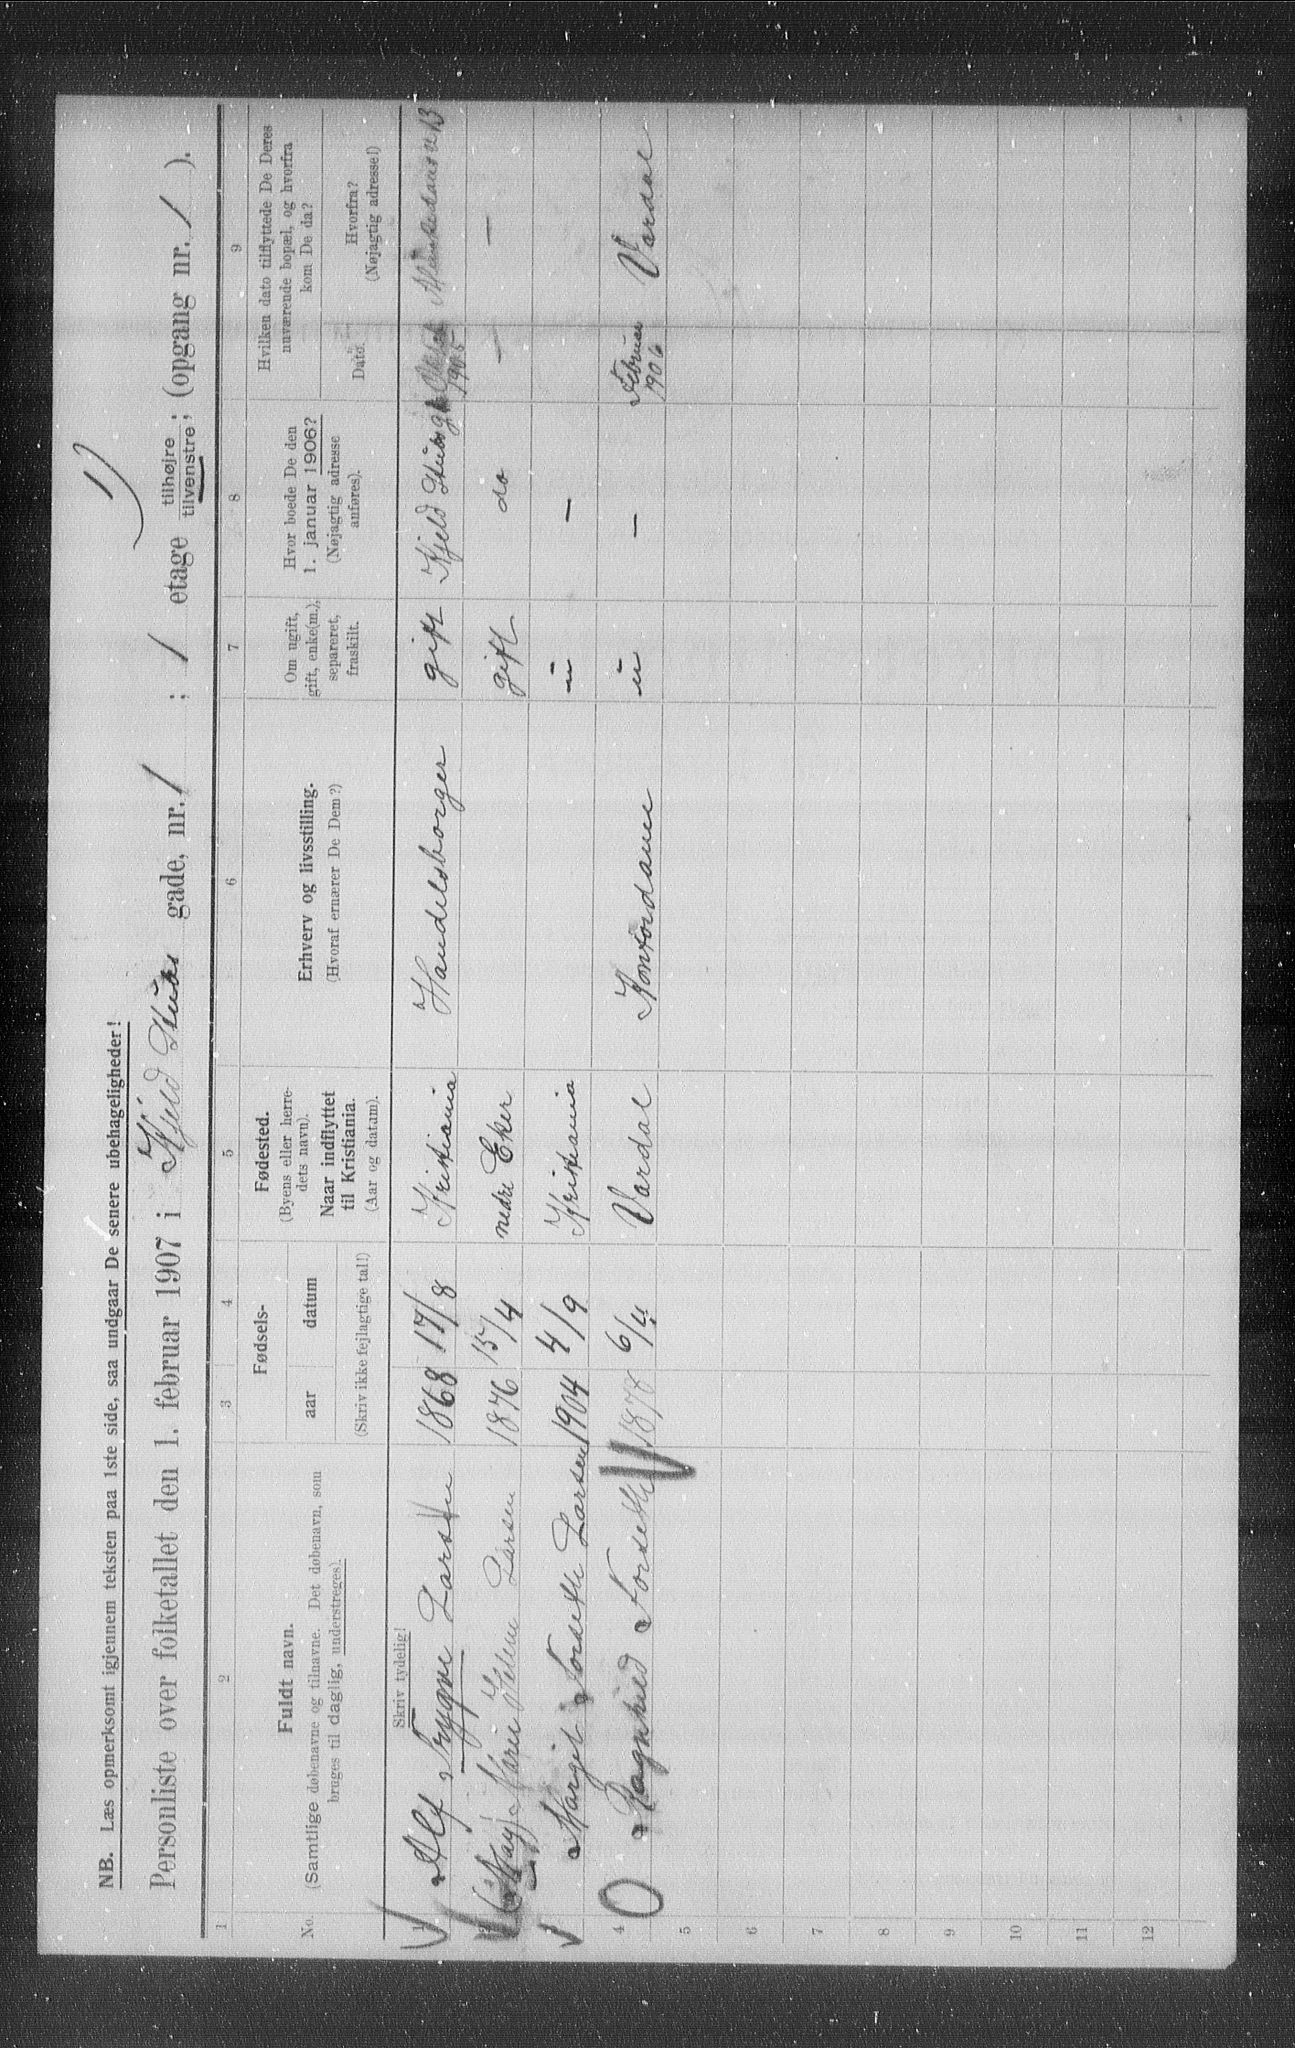 NB. Læs opmerksomt igjennem teksten paa 1ste side, saa undgaar De senere ubehageligheder!
1)
Personliste over folketallet den 1. februar 1907 i Kjeld Stubs gade, nr. 1 ; 1 etage tilhøjre tilvenstre; (opgang nr. 1 ).
1 2 3 4 5 6 7 8 9
No.
Fuldt navn.
(Samtlige døbenavne og tilnavne. Det døbenavn, som
bruges til daglig, understreges).
Fødsels-
aar datum
(Skriv ikke fejlagtige tal!)
Fødested.
(Byens eller herre-
dets navn).
Naar indflyttet
til Kristiania.
(Aar og datum).
Erhverv og livsstilling.
(Hvoraf ernærer De Dem?)
Om ugift,
gift, enke(m.),
separeret,
fraskilt.
Hvor boede De den
1. januar 1906?
(Nøjagtig adresse
anføres).
Hvilken dato tilflyttede De Deres
nuværende bopæl, og hvorfra
kom De da?
Dato.
Hvorfra?
(Nøjagtig adresse!)
Skriv tydelig!
1 Alf Trygve Larsen 1868 17/8 Kristiania Handelsborger gift Kjeld Stubsg 1 1905 13
2 Marie Helene Larsen 1876 15/4 nedre Eker gift do — —
3 Margit Forseth Larsen 1904 4/9 Kristiania ü —
4 Ragnhild Forseth 1878 6/4 Vardal Kontordame ü — Februar 1906 Vardal
5
6
7
8
9
10
11
12